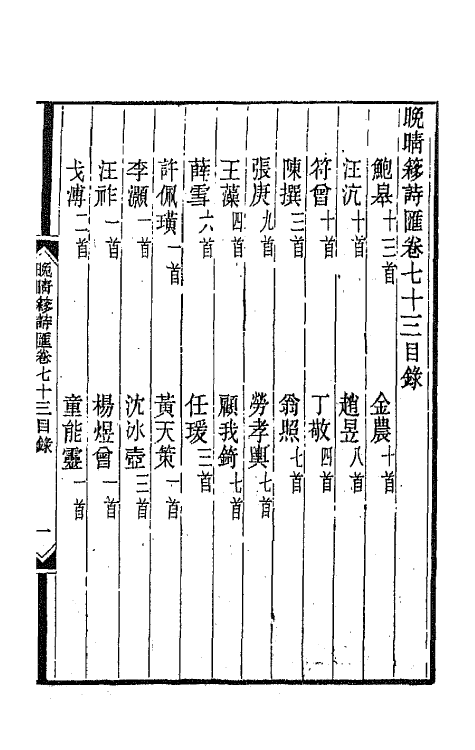 晚晴簃詩匯卷七十三目錄
鮑皋十三首　金農十首
汪沆十首　趙昱八首
符曾十首　丁敬四首
陳撰三首　翁照七首
張庚九首　勞孝輿七首
王藻四首　顧我錡七首
薛雪六首　任瑗三首
許佩璜一首　黃天策一首
李灝一首　沈冰壺三首
汪祚一首　楊煜曾一首
戈濤二首　童能靈一首
晚晴簃詩匯卷七十三目錄　一